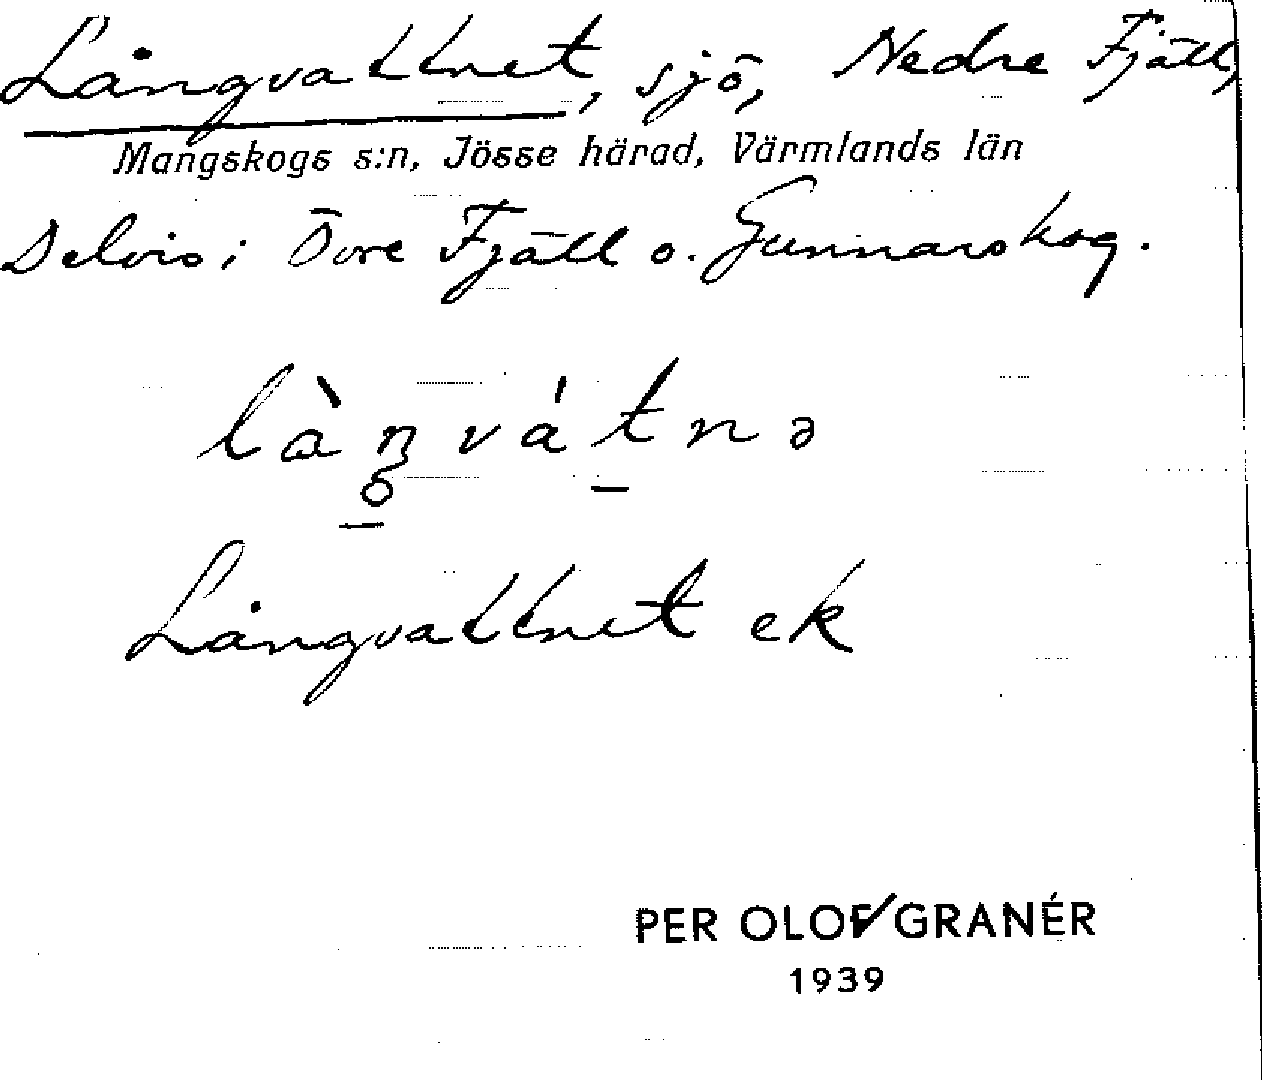 Långvattnet, sjö, Nedre Fjäll,
Mangskogs s:n, Jösse härad, Värmlands län
Delvis i Övre Fjäll o. Gunnarskog.
Långvattnet ek
PER OLOF GRANÉR
1939